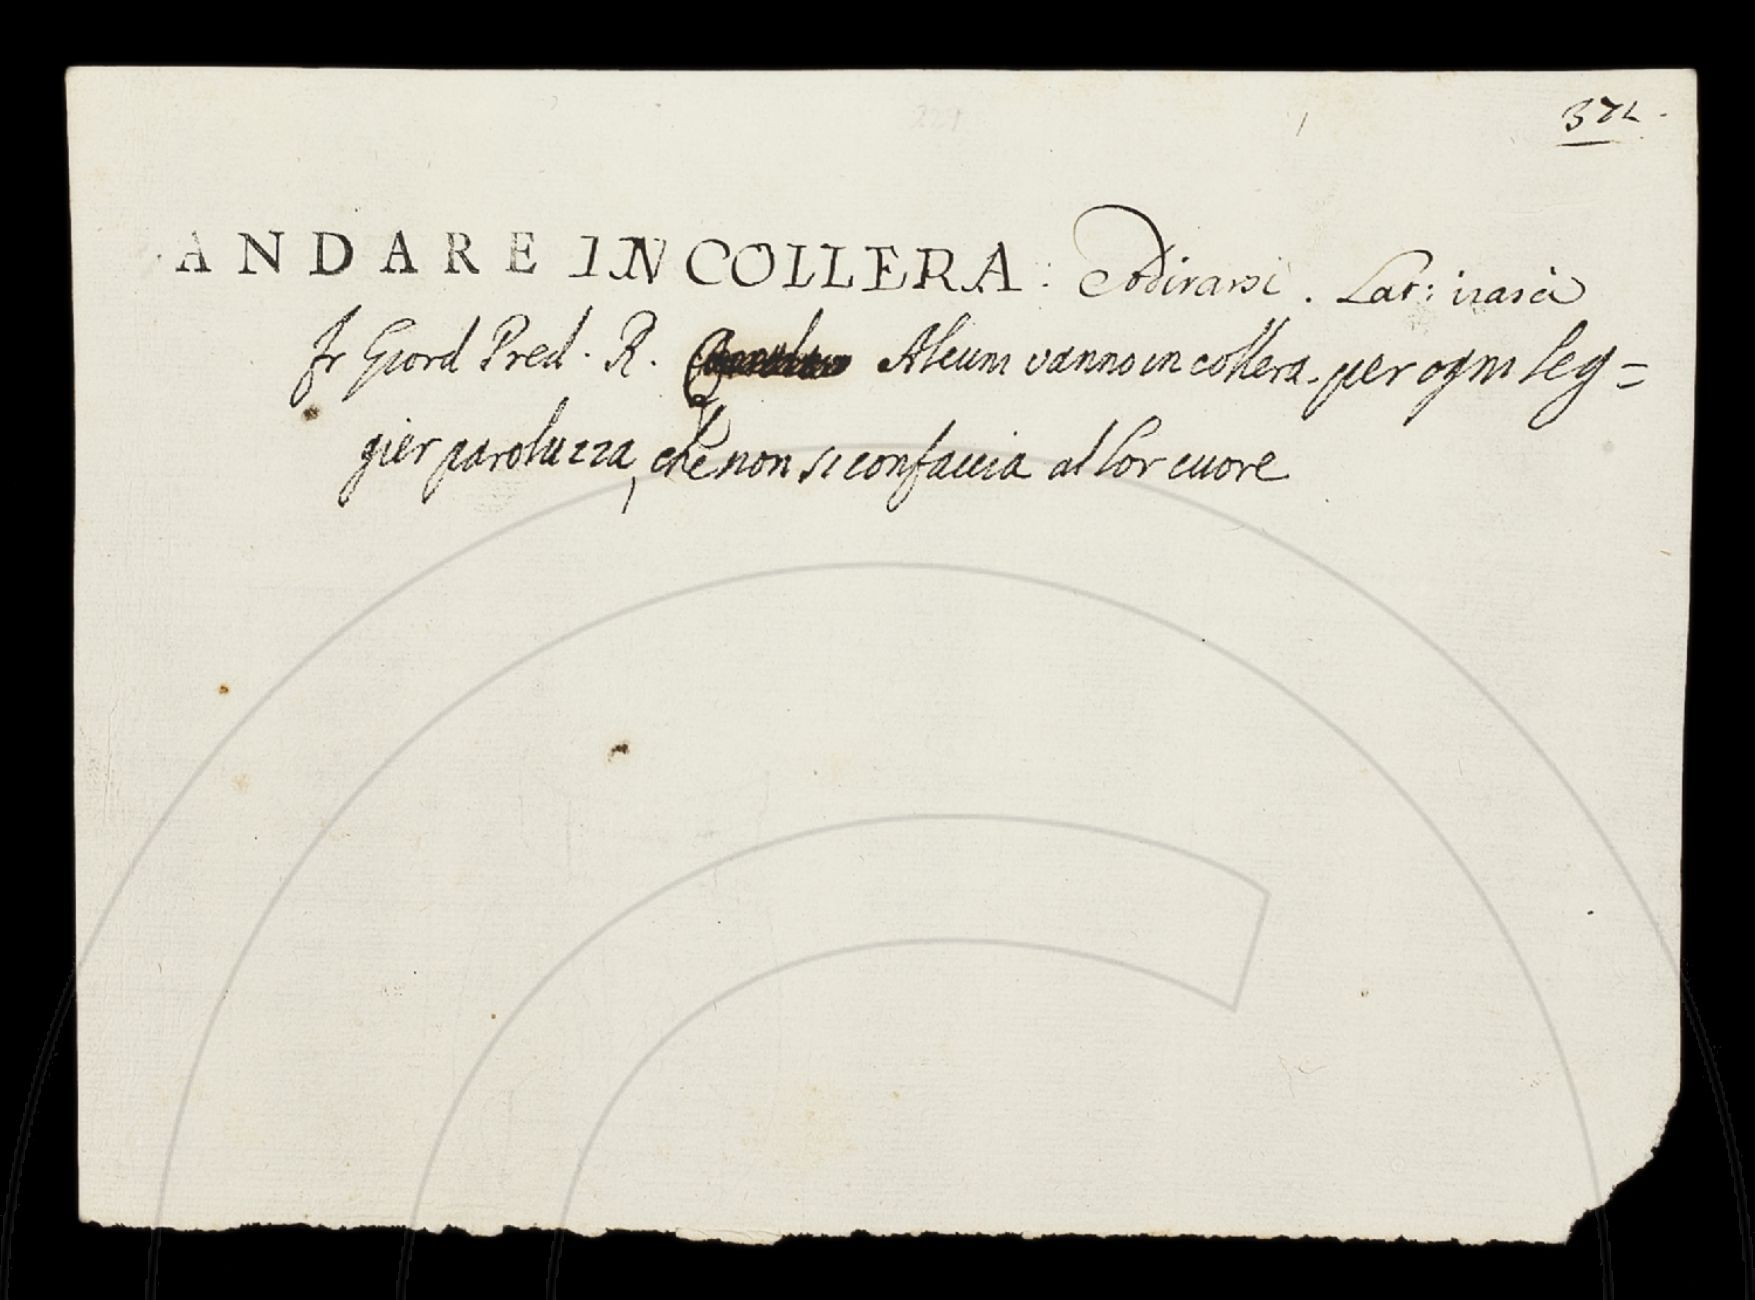 372.
ANDARE IN COLLERA. Adirarsi. Lat: irasci
fr Giord Pred. R. Alcuni vanno in collera per ogni leg=
gier paroluzza, che non si confaccia al lor cuore